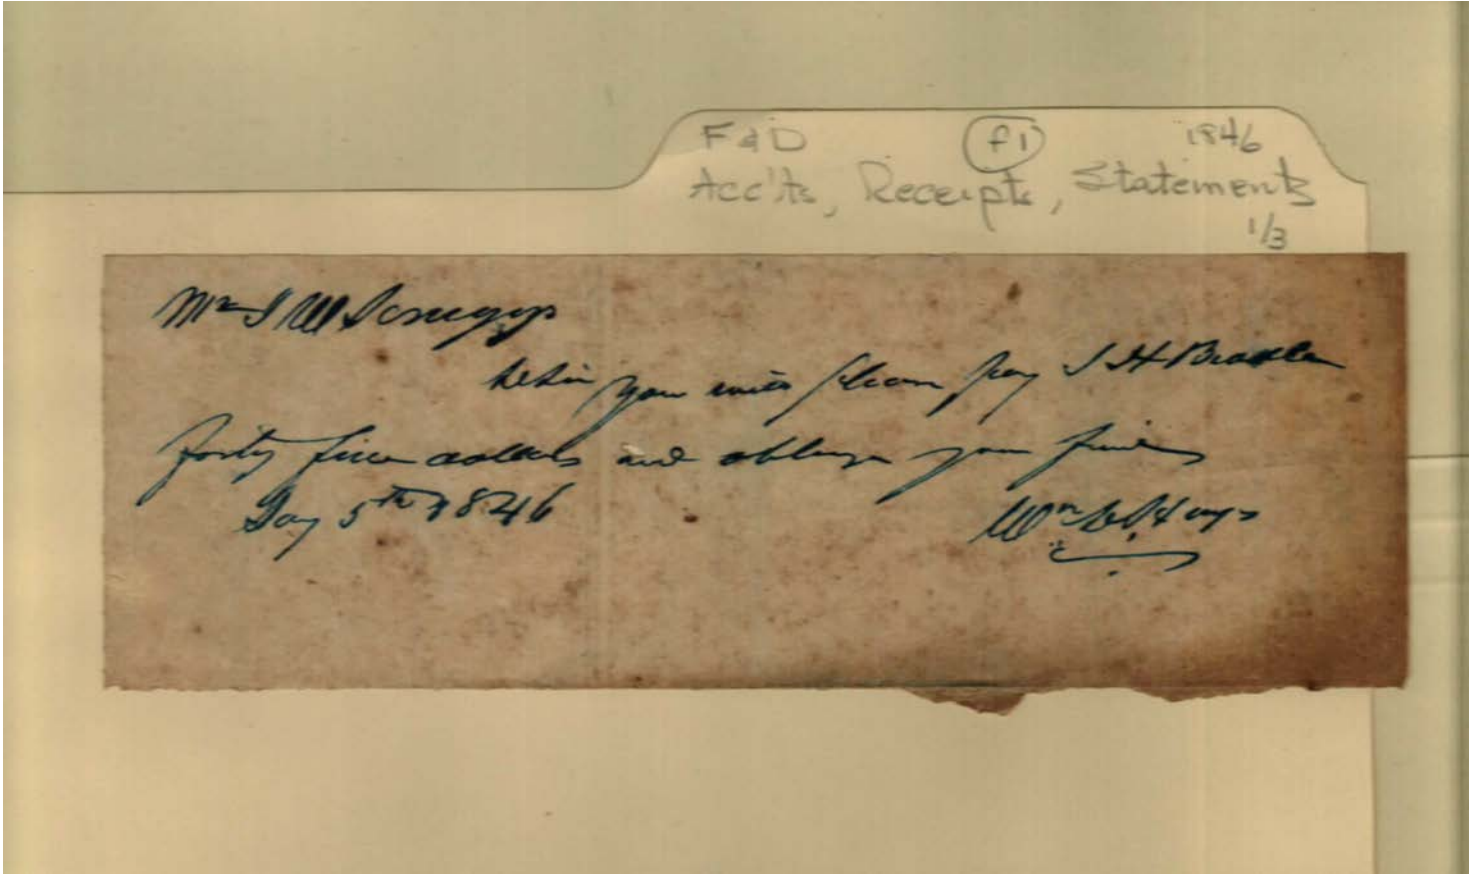 F & D (f1) 1846
Acc'ts, Receipts, Statements
1/3
Mr J W Scruggs
you will please pay J H Bradley
forty five dollars and oblige your friend
5th 1846
Wm Hays